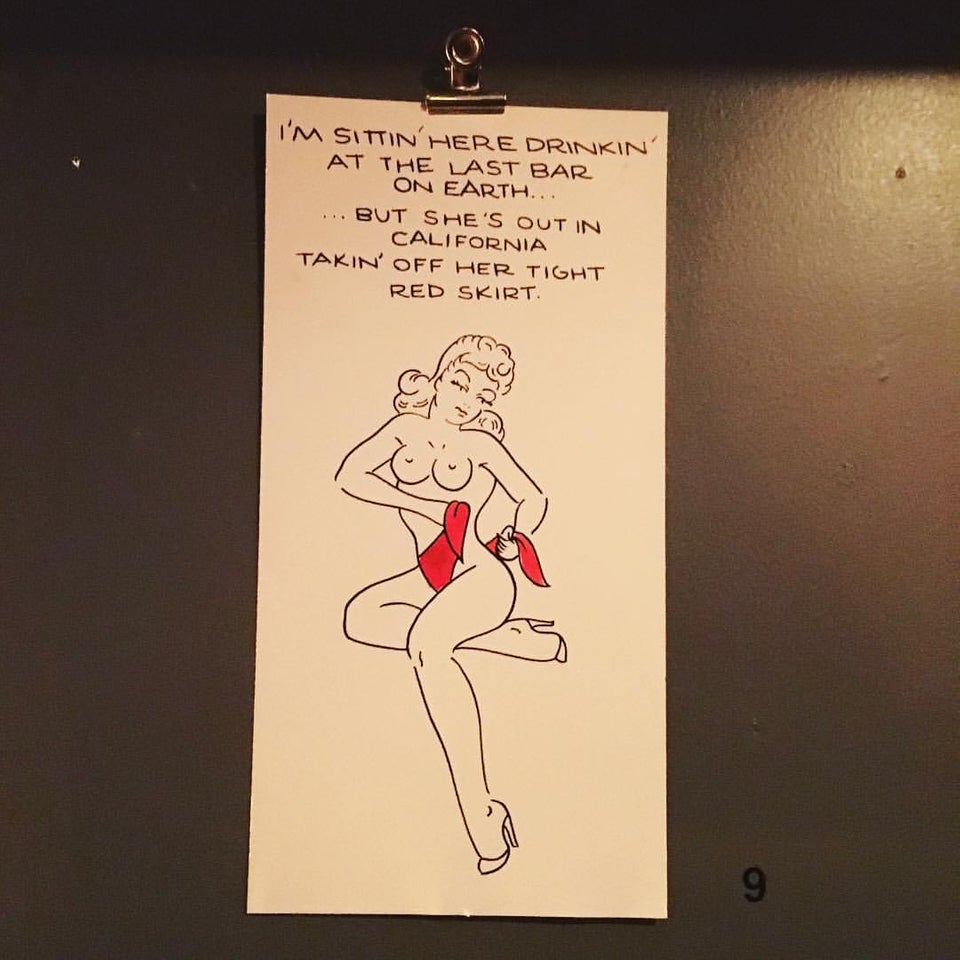 I'M SITTIN' HERE DRINKIN'
AT THE LAST BAR
ON EARTH...
...BUT SHE'S OUT IN
CALIFORNIA
TAKIN' OFF HER TIGHT
RED SKIRT.
9